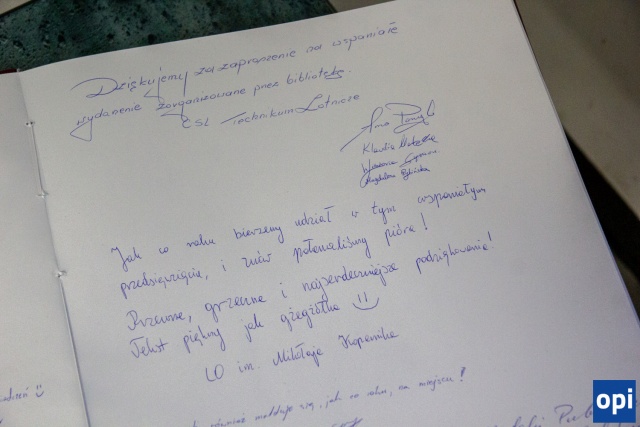 Dziękujemy za zaproszenie na wspaniałe
wydarzenie zorganizowane przez bibliotekę.
ZSŁ Technikum Lotnicze
Anna
Klaudia
Jak co roku bierzemy udział w tym wspaniałym
przedsięwzięciu, i znów połamaliśmy pióra!
Rzewne, grzeczne i najserdeczniejsze podziękowania!
Tekst piękny jak gżegżółka
LO im. Mikołaja Kopernika
również melduje się, jak co roku, na miejscu!
opi